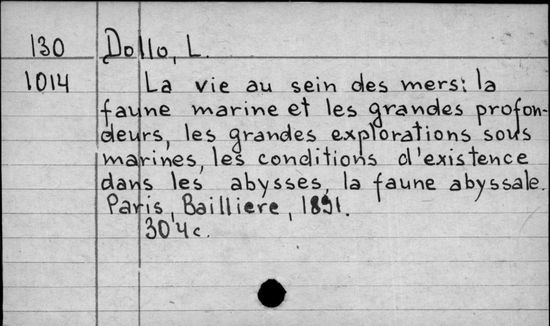 130 Dollo, L.
1014 La vie au sein des mers: la
faune marine et les grandes profon-
deurs, les grandes explorations sous
marines, les conditions d'existence
dans les abysses, la faune abyssale.
Paris, Bailliere, 1891.
304c.